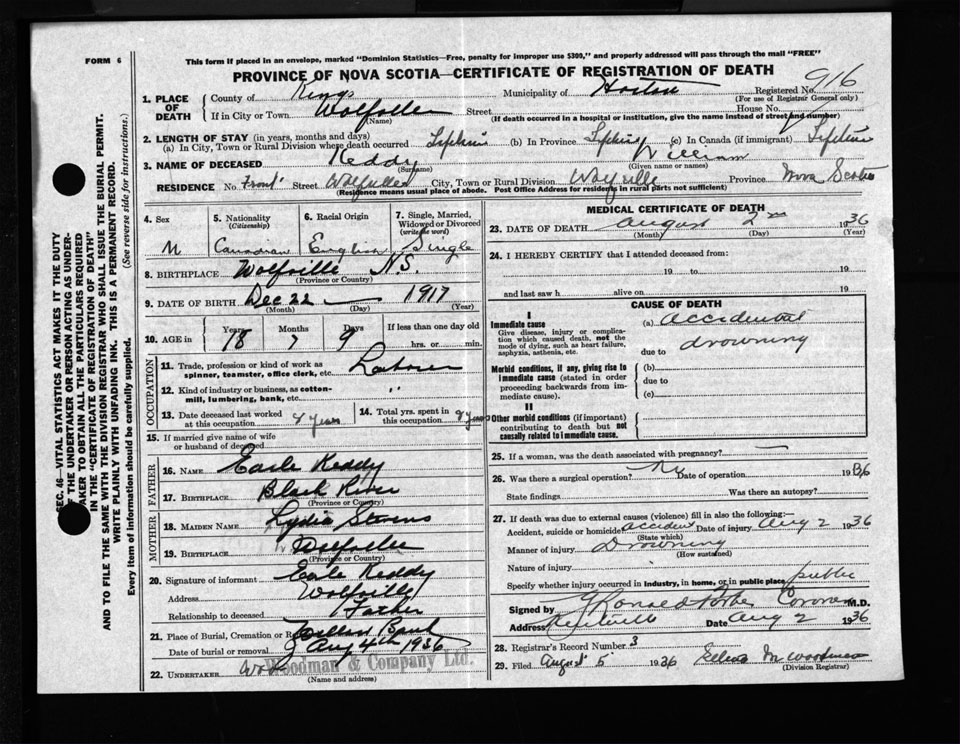 FORM 6
This form if placed in an envelope, marked "Dominion Statistics—Free, penalty for improper use $300," and properly addressed will pass through the mail "FREE"
PROVINCE OF NOVA SCOTIA—CERTIFICATE OF REGISTRATION OF DEATH
916
1. PLACE OF DEATH
County of Kings Municipality of Horton Registered No.
(For use of Registrar General only)
If in City or Town Wolfville Street House No.
(Name) (If death occurred in a hospital or institution, give the name instead of street and number)
2. LENGTH OF STAY (in years, months and days)
(a) In City, Town or Rural Division where death occurred Lifetime (b) In Province Lifetime (c) In Canada (if immigrant) Lifetime
3. NAME OF DECEASED Keddy William
(Surname) (Given name or names)
RESIDENCE No. Front Street Wolfville City, Town or Rural Division Wolfville Province Nova Scotia
(Residence means usual place of abode. Post Office Address for residents in rural parts not sufficient)
4. Sex
M
5. Nationality
(Citizenship)
Canadian
6. Racial Origin
English
7. Single, Married, Widowed or Divorced
(write the word)
Single
8. BIRTHPLACE Wolfville N.S.
(Province or Country)
9. DATE OF BIRTH Dec 22 1917
(Month) (Day) (Year)
10. AGE in
Years Months Days If less than one day old
18 7 9 hrs. or min.
OCCUPATION
11. Trade, profession or kind of work as spinner, teamster, office clerk, etc. Laborer
12. Kind of industry or business, as cotton-mill, lumbering, bank, etc. "
13. Date deceased last worked at this occupation 4 years
14. Total yrs. spent in this occupation years
15. If married give name of wife or husband of deceased
FATHER
16. NAME Earle Keddy
17. BIRTHPLACE Black River
(Province or Country)
MOTHER
18. MAIDEN NAME Lydia Stevens
19. BIRTHPLACE Wolfville
(Province or Country)
20. Signature of informant Earle Keddy
Address Wolfville
Relationship to deceased Father
21. Place of Burial, Cremation or
Date of burial or removal Aug 4th 1936
22. UNDERTAKER Woodman & Company Ltd.
(Name and address)
MEDICAL CERTIFICATE OF DEATH
23. DATE OF DEATH August 2nd 1936
(Month) (Day) (Year)
24. I HEREBY CERTIFY that I attended deceased from:
19 to 19
and last saw h alive on 19
CAUSE OF DEATH
I
Immediate cause
Give disease, injury or complication which caused death, not the mode of dying, such as heart failure, asphyxia, asthenia, etc.
(a) accidental
due to drowning
Morbid conditions, if any, giving rise to immediate cause (stated in order proceeding backwards from immediate cause).
(b)
due to
(c)
II
Other morbid conditions (if important) contributing to death but not causally related to immediate cause.
25. If a woman, was the death associated with pregnancy? —
26. Was there a surgical operation? No Date of operation 1936
State findings Was there an autopsy?
27. If death was due to external causes (violence) fill in also the following:—
Accident, suicide or homicide accident Date of injury Aug 2 1936
(State which)
Manner of injury Drowning
(How sustained)
Nature of injury
Specify whether injury occurred in industry, in home, or in public place public
Signed by Coroner M.D.
Address Date Aug 2 1936
28. Registrar's Record Number 3
29. Filed August 5 1936 M Woodman
(Division Registrar)
SEC. 46—VITAL STATISTICS ACT MAKES IT THE DUTY OF THE UNDERTAKER OR PERSON ACTING AS UNDERTAKER TO OBTAIN ALL THE PARTICULARS REQUIRED IN THE "CERTIFICATE OF REGISTRATION OF DEATH" AND TO FILE THE SAME WITH THE DIVISION REGISTRAR WHO SHALL ISSUE THE BURIAL PERMIT.
WRITE PLAINLY WITH UNFADING INK. THIS IS A PERMANENT RECORD.
Every item of information should be carefully supplied. (See reverse side for instructions.)